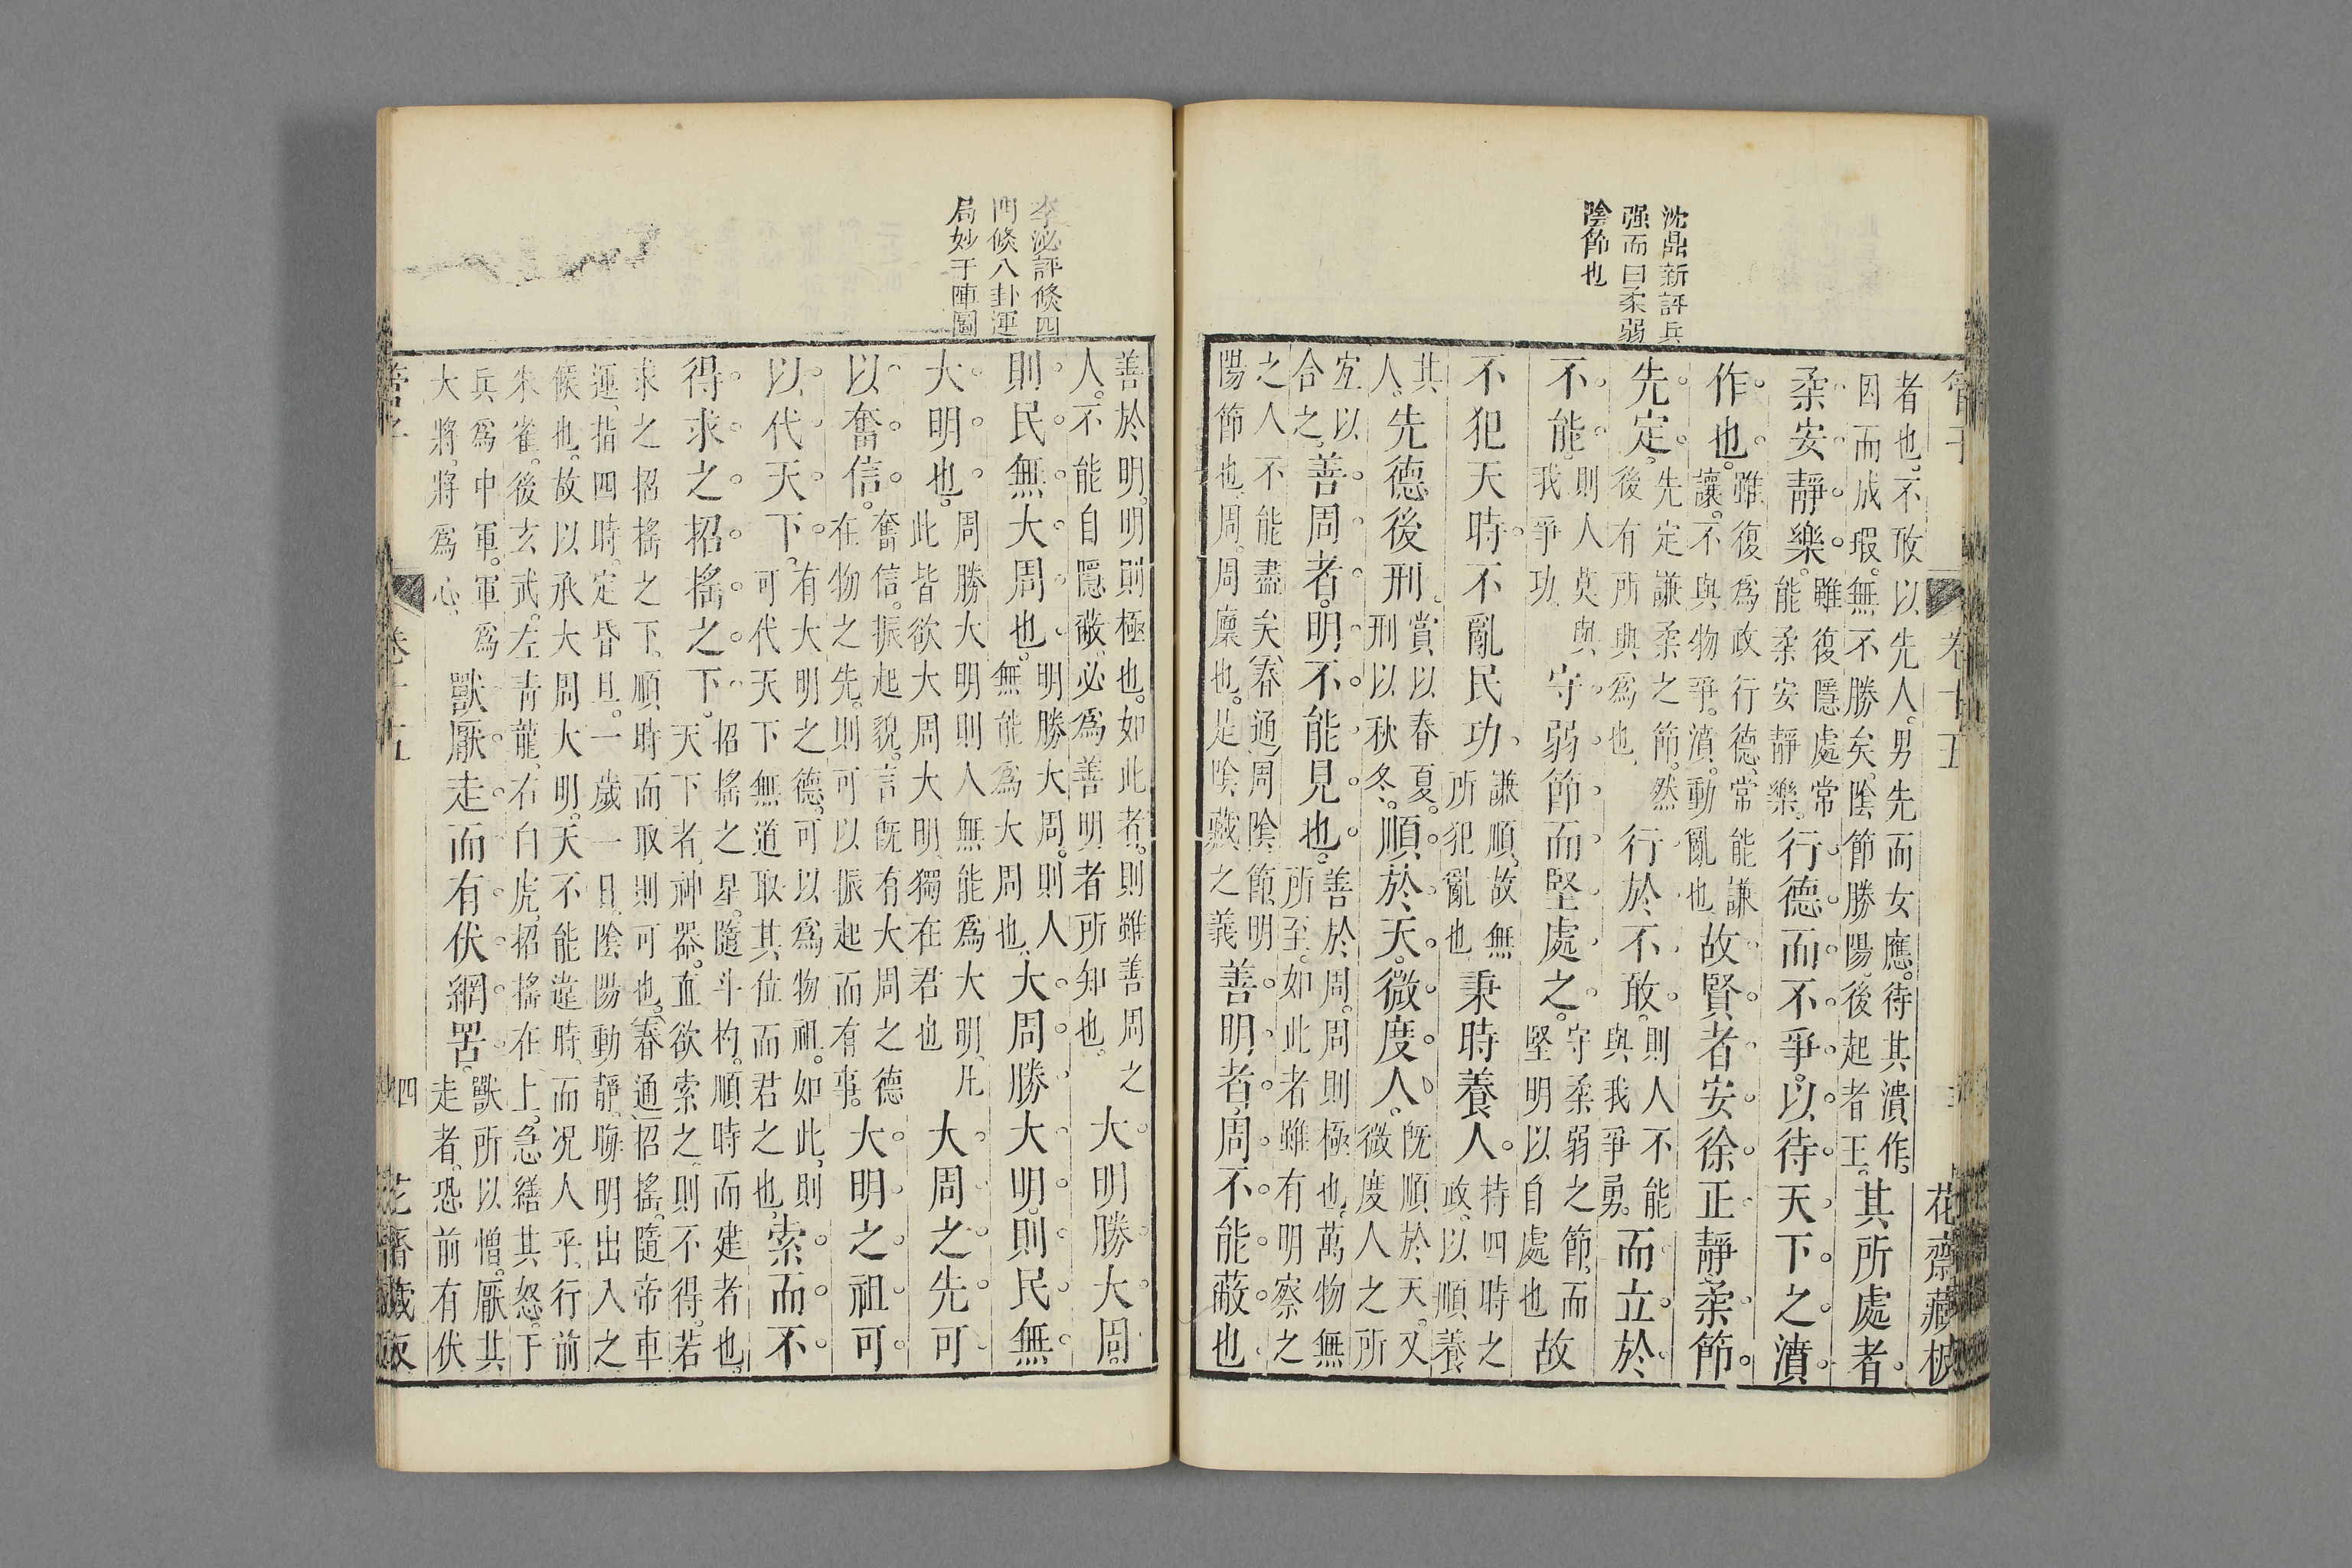 沈鼎新評兵
强而曰柔弱
陰節也
管子 卷十五 三 花齋藏板
者也不敢以先人。男先而女應。待其潰作。
因而成瑕。無不勝矣。陰節勝陽。後起者王。
其所處者。
柔安靜樂。
雖復隱處常
能柔安靜樂。
行德而不爭。以待天下之濆
作也。
雖復爲政行德常能謙
讓。不與物爭。濆。動亂也
故賢者安徐正靜柔節
先定。
先定謙柔之節。然
後有所與爲也
行於不敢。
則人不能
與我爭勇。
而立於
不能。
則人莫與
我爭功
守弱節而堅處之。
守柔弱之節。而
堅明以自處也
故
不犯天時不亂民功
謙順故無
所犯亂也
秉時養人。
持四時之
政。以順養
其
人。
先德後刑
賞以春夏。
刑以秋冬。
順於天。微度人。
既順於天。又
微度人之所
宐以
合之。
善周者。明不能見也。
善於周。周則極也。萬物無
所至。如此者雖有明察之
之人不能盡矣春通周陰節明
陽節也周。周廩也。是陰藏之義
善明者。周不能蔽也
李泌評倐四
門倐八卦運
局妙于陣圖
善於明。明則極也。如此者。則雖善周之
人。不能自隱蔽。必爲善明者所知也。
大明勝大周。
則民無大周也。
明勝大周。則人
無能爲大周也
大周勝大明。則民無
大明也。
周勝大明明則人無能爲大明。凡
此皆欲大周大明獨在君也
大周之先可
以奮信。
奮信。振起貌。言既有大周之德
在物之先。則可以振起而有事。
大明之祖可
以代天下。
有大明之德。可以爲物祖。如此則
可代天下無道取其位而君之也
索而不
得。求之招搖之下。
招搖之星。隨斗杓。順時而建者也
天下者神器。直欲索之。則不得。若
求之招搖之下。順時而取則可也。春通招搖。隨帝車
運。指四時。定昏旦。一歲一日。陰陽動靜。晦明出入之
候也。故以承大周大明。天不能違時。而况人乎。行前
朱雀。後玄武。左青龍右白虎。招搖在上。急繕其怒。于
兵爲中軍。軍爲
大將。將爲心
獸厭走而有伏網罟。
獸所以憎厭其
走者恐前有伏
管子 卷十五 四 花齋藏板